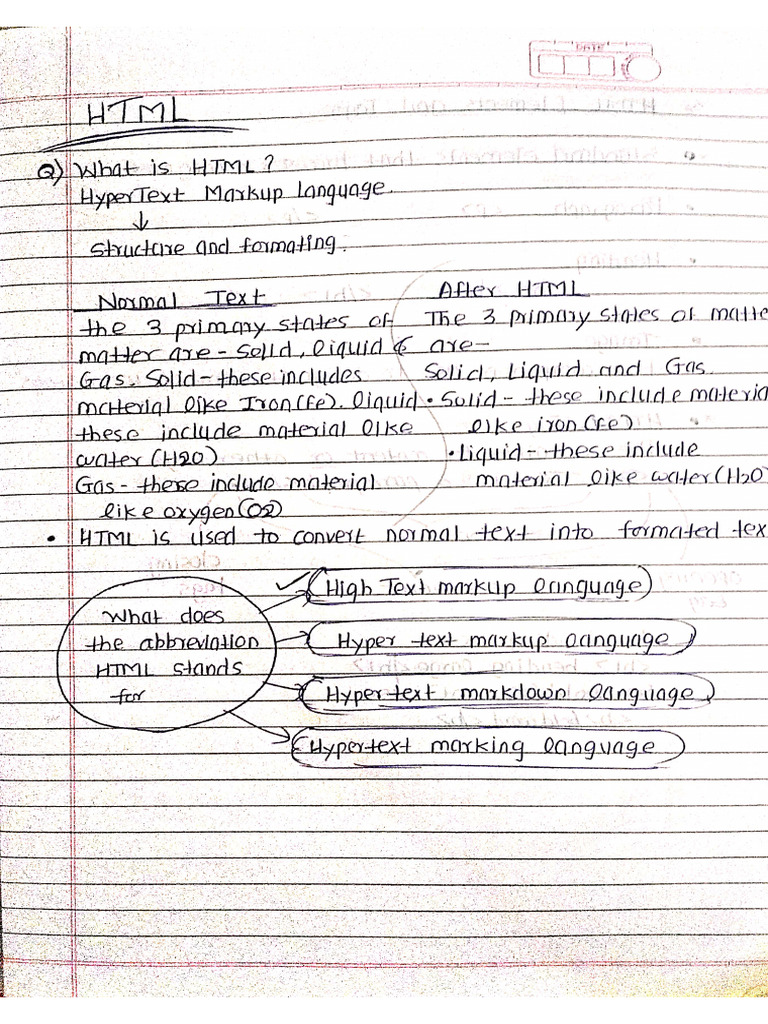 DATE
HTML
Q) What is HTML?
HyperText Markup Language.
↓
structure and formating.
Normal Text
the 3 primary states of
matter are - Solid, liquid &
Gas. Solid - these includes
material like Iron(Fe). liquid
these include material like
water(H2O)
Gas - these include material
like oxygen(O2)
After HTML
The 3 primary states of matte
are -
Solid, Liquid and Gas.
• Solid - these include materia
like iron(Fe)
• Liquid - these include
material like water(H2O)
• HTML is used to convert normal text into formated tex
What does
the abbreviation
HTML stands
for
✓ High Text markup language
Hyper text markup language
Hyper text markdown language
Hypertext marking language